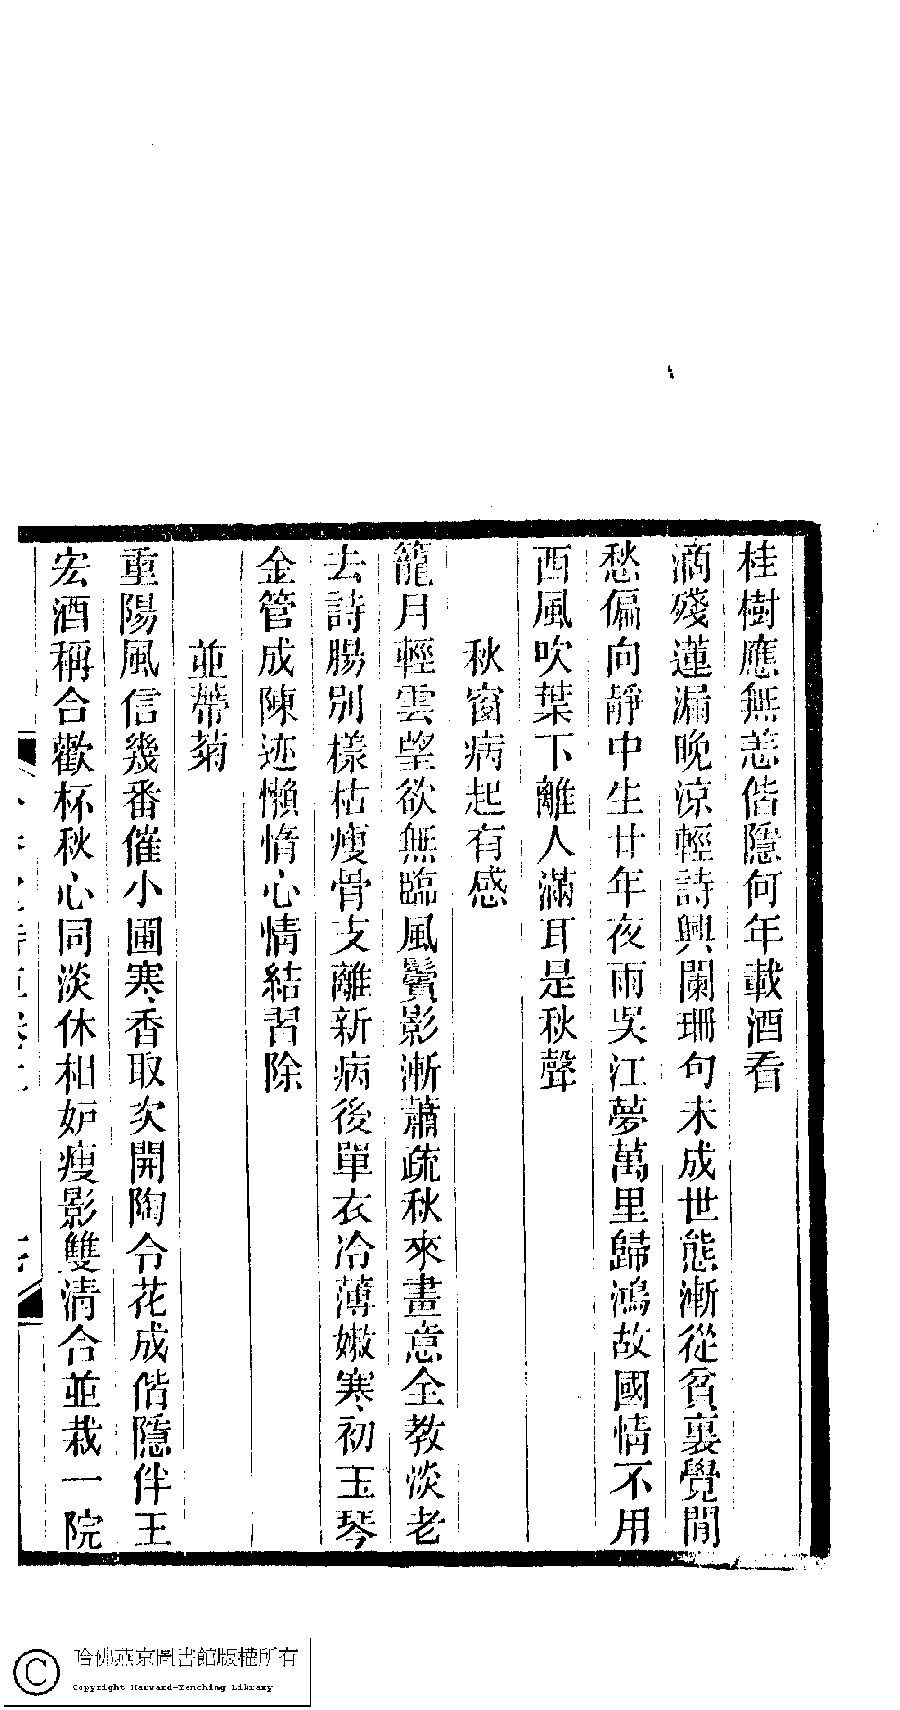 桂樹應無恙偕隱何年載酒看
滴殘蓮漏晚涼輕詩興闌珊句未成世態漸從貧裏覺閒
愁偏向靜中生廿年夜雨吳江夢萬里歸鴻故國情不用
西風吹葉下離人滿耳是秋聲
秋窗病起有感
籠月輕雲望欲無臨風鬢影漸蕭疏秋來畫意全教淡老
去詩腸別樣枯瘦骨支離新病後單衣冷薄嫩寒初玉琴
金管成陳迹懶惰心情結習除
並蒂菊
重陽風信幾番催小圃寒香取次開陶令花成偕隱伴王
宏酒稱合歡杯秋心同淡休相妒瘦影雙清合並栽一院
哈佛燕京圖書館版權所有
Copyright Harvard-Yenching Library